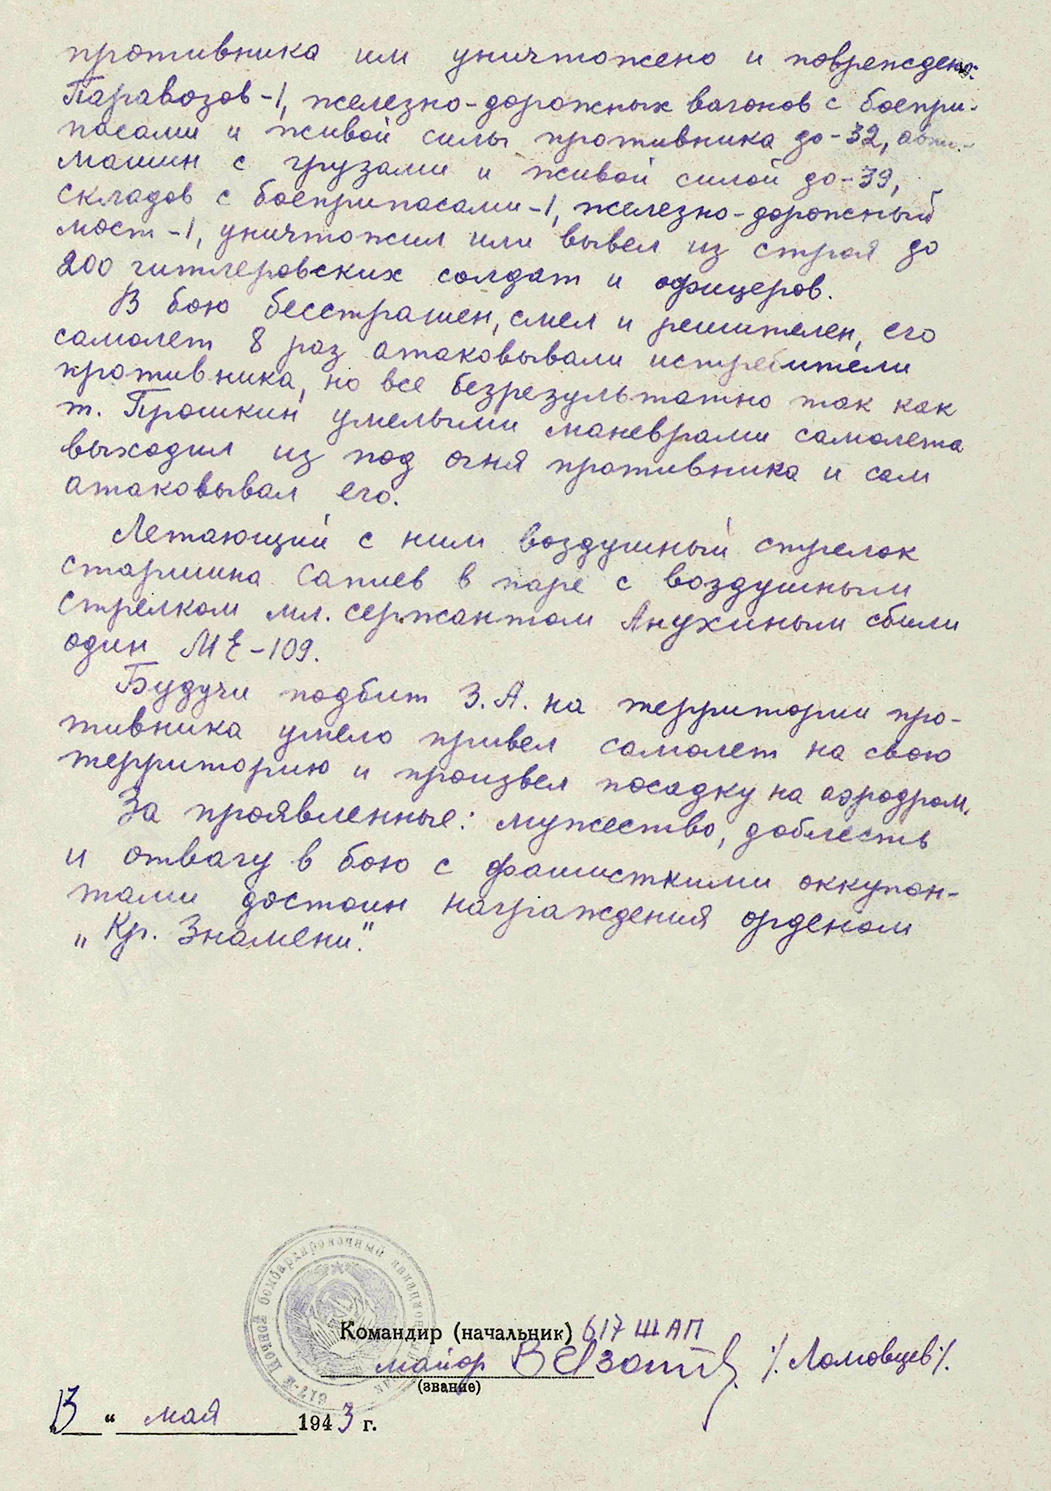 противника им уничтожено и повреждено:
Паравозов-1, железно-дорожных вагонов с боепри-
пасами и живой силы противника до-32, авто-
машин с грузами и живой силой до-39,
складов с боеприпасами-1, железно-дорожный
мост-1, уничтожил или вывел из строя до
200 гитлеровских солдат и офицеров.
В бою бесстрашен, смел и решителен, его
самолет 8 раз атаковывали истребители
противника, но все безрезультатно так как
т. Прошкин умелыми маневрами самолета
выходил из под огня противника и сам
атаковывал его.
Летающий с ним воздушный стрелок
старшина Сапиев в паре с воздушным
стрелком мл. сержантом Анухиным сбили
один МЕ-109.
Будучи подбит З.А. на территории про-
тивника умело привел самолет на свою
территорию и произвел посадку на аэродром.
За проявленные: мужество, доблесть
и отвагу в бою с фашисткими оккупан-
тами достоин награждения орденом
„Кр. Знамени".
617-й Ночной бомбардировочный авиационный
Командир (начальник) 617 ШАП
майор /Ломовцев/.
(звание)
13 " мая 1943 г.